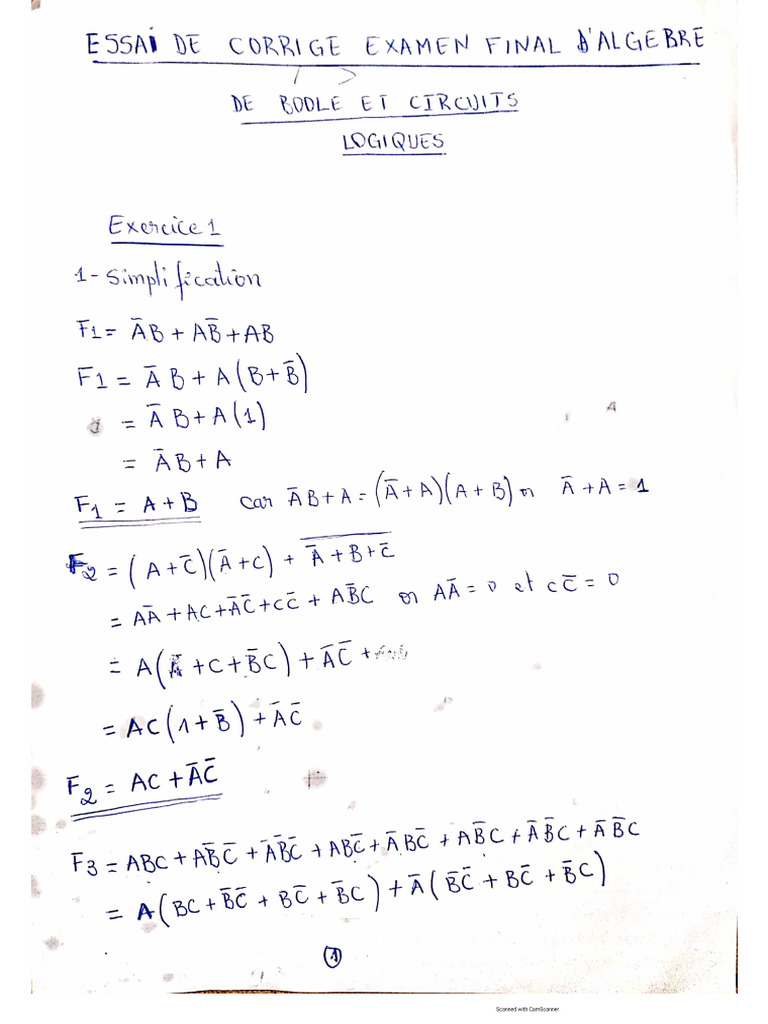 ESSAI DE CORRIGE EXAMEN FINAL D'ALGEBRE
DE BOOLE ET CIRCUITS
LOGIQUES
Exercice 1
1- Simplification
F1 = A̅B + AB̅ + AB
F1 = A̅B + A(B + B̅)
= A̅B + A(1)
= A̅B + A
F₁ = A + B car A̅B + A = (A̅ + A)(A + B) or A̅ + A = 1
F₂ = (A + C̅)(A̅ + C) + \overline{A̅ + B + C̅}
= AA̅ + AC + A̅C̅ + CC̅ + AB̅C or AA̅ = 0 et CC̅ = 0
= A( + C + B̅C) + A̅C̅ +
= AC(1 + B̅) + A̅C̅
F₂ = AC + A̅C̅
F3 = ABC + AB̅C̅ + A̅B̅C̅ + ABC̅ + A̅BC̅ + AB̅C + A̅B̅C + A̅B̅C
= A(BC + B̅C̅ + BC̅ + B̅C) + A̅(B̅C̅ + BC̅ + B̅C)
1
Scanned with CamScanner